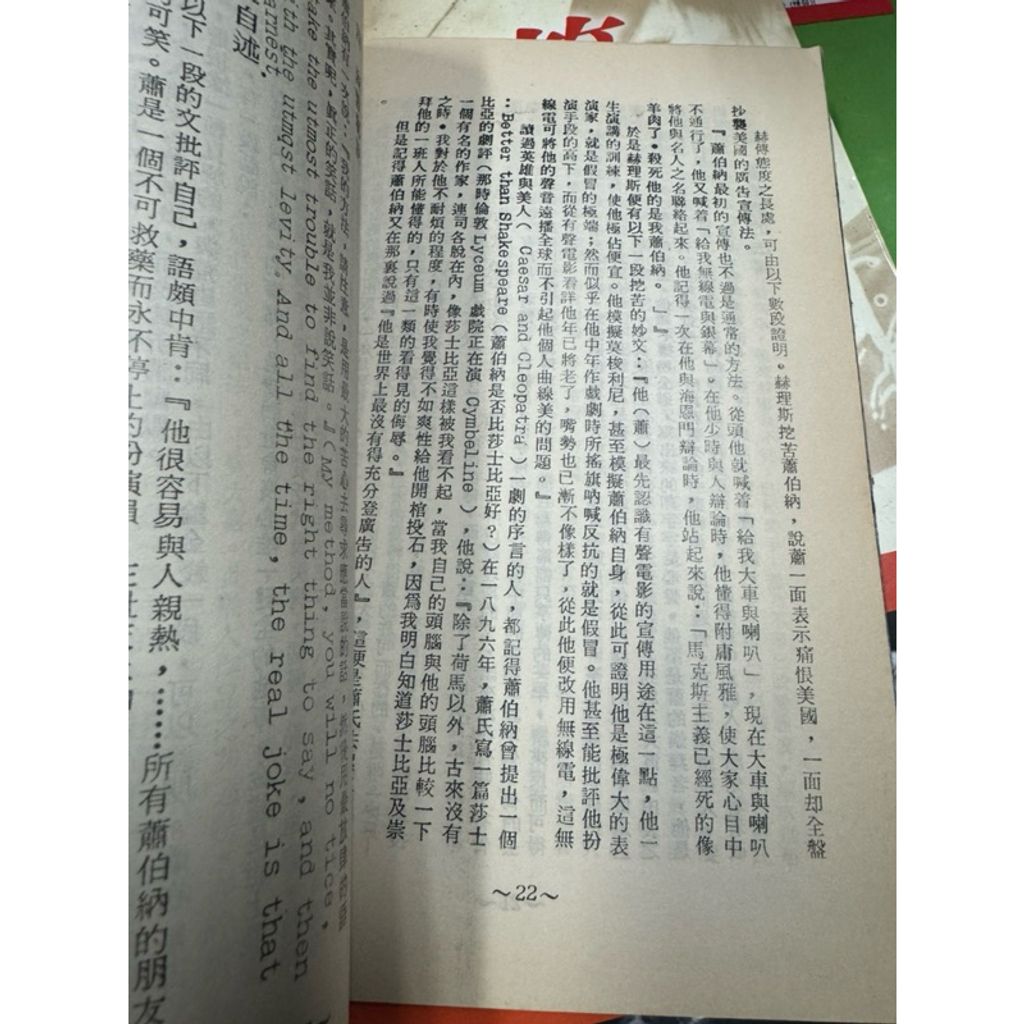 赫傳態度之長處，可由以下數段證明。赫理斯挖苦蕭伯納，說蕭一面表示痛恨美國，一面却全盤
抄襲美國的廣告宣傳法。
『蕭伯納最初的宣傳也不過是通常的方法。從頭他就喊着「給我大車與喇叭」，現在大車與喇叭
不通行了，他又喊着「給我無線電與銀幕」。在他少時與人辯論時，他懂得附庸風雅，使大家心目中
將他與名人之名聯絡起來。他記得一次在他與海恩門辯論時，他站起來說：「馬克斯主義已經死的像
羊肉了。殺死他的是我蕭伯納。」』
於是赫理斯便有以下一段挖苦的妙文：『他（蕭）最先認識有聲電影的宣傳用途在這一點，他一
生演講的訓練，使他極佔便宜。他模擬莫梭利尼，甚至模擬蕭伯納自身，從此可證明他是極偉大的表
演家，就是假冒的極端；然而似乎在他中年作戲劇時所搖旗吶喊反抗的就是假冒。他甚至能批評他扮
演手段的高下，而從有聲電影看詳他年已將老了，嘴勢也已漸不像樣了，從此他便改用無線電，這無
線電可將他的聲音遠播全球而不引起他個人曲線美的問題。』
讀過英雄與美人（ Caesar and Cleopatra ）一劇的序言的人，都記得蕭伯納曾提出一個
：Better than Shakespeare（蕭伯納是否比莎士比亞好？）在一八九六年，蕭氏寫一篇莎士
比亞的劇評（那時倫敦 Lyceum 戲院正在演 Cymbeline ），他說：『除了荷馬以外，古來沒有
一個有名的作家，連司各脫在內，像莎士比亞這樣被我看不起，當我自己的頭腦與他的頭腦比較一下
之時。我對於他不耐煩的程度，有時使我覺得不如爽性給他開棺投石，因爲我明白知道莎士比亞及崇
拜他的一班人所能懂得的，只有這一類的看得見的侮辱。』
但是記得蕭伯納又在那裏說過『他是世界上最沒有得充分登廣告的人』，這便是蕭氏
～22～
其實呢，眞正的笑話，就是我並非說笑話。』(My method, you will no tice,
ake the utmost trouble to find the right thing to say, and then
th the utmost levity. And all the time, the real joke is that
arnest.
自述。
以下一段的文批評自己，語頗中肯：『他很容易與人親熱，……所有蕭伯納的朋友
可笑。蕭是一個不可救藥而永不停止的扮演員